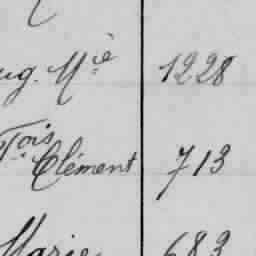 ug. Mie 1228
Fois Clément 713
Marie 683